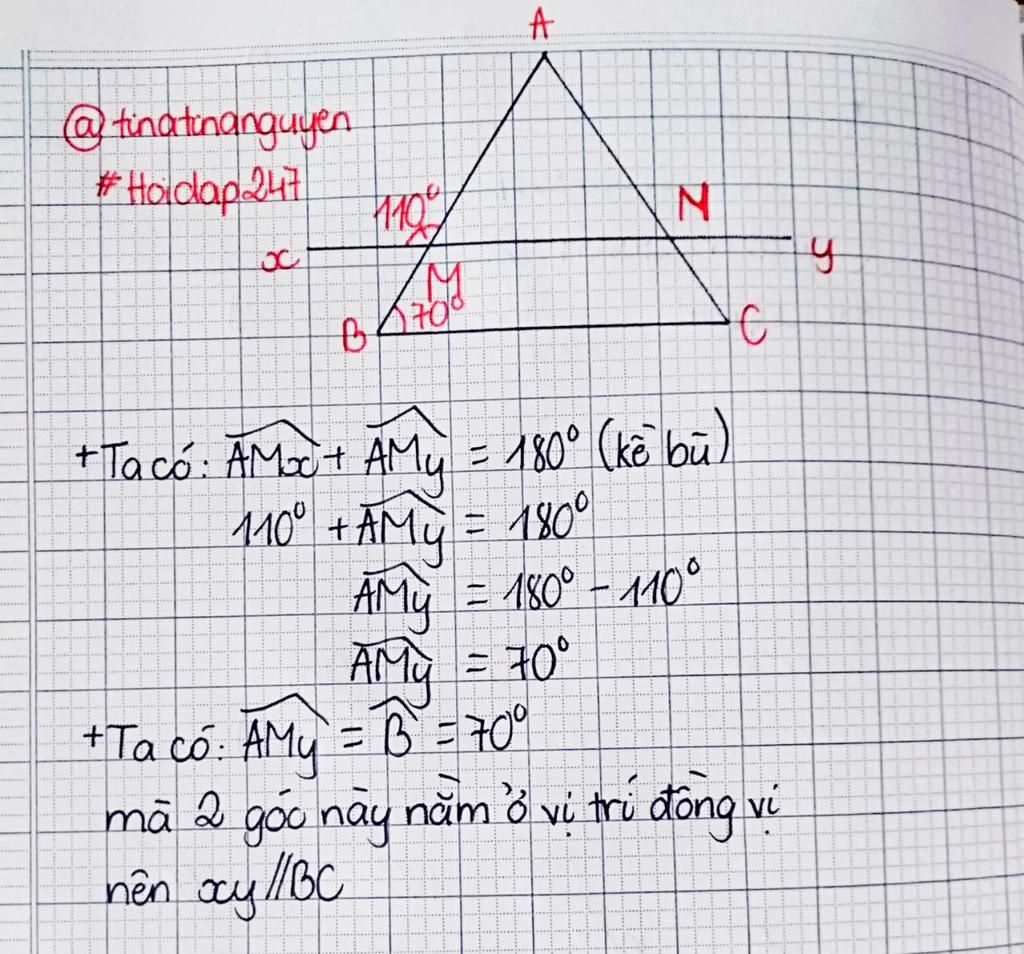 A
@tinatinanguyen
#Hoidap247
110°
N
x
y
M
70°
B
C
+Ta có: AMx + AMy = 180° (kề bù)
110° + AMy = 180°
AMy = 180° - 110°
AMy = 70°
+Ta có: AMy = B = 70°
mà 2 góc này nằm ở vị trí đồng vị
nên xy//BC